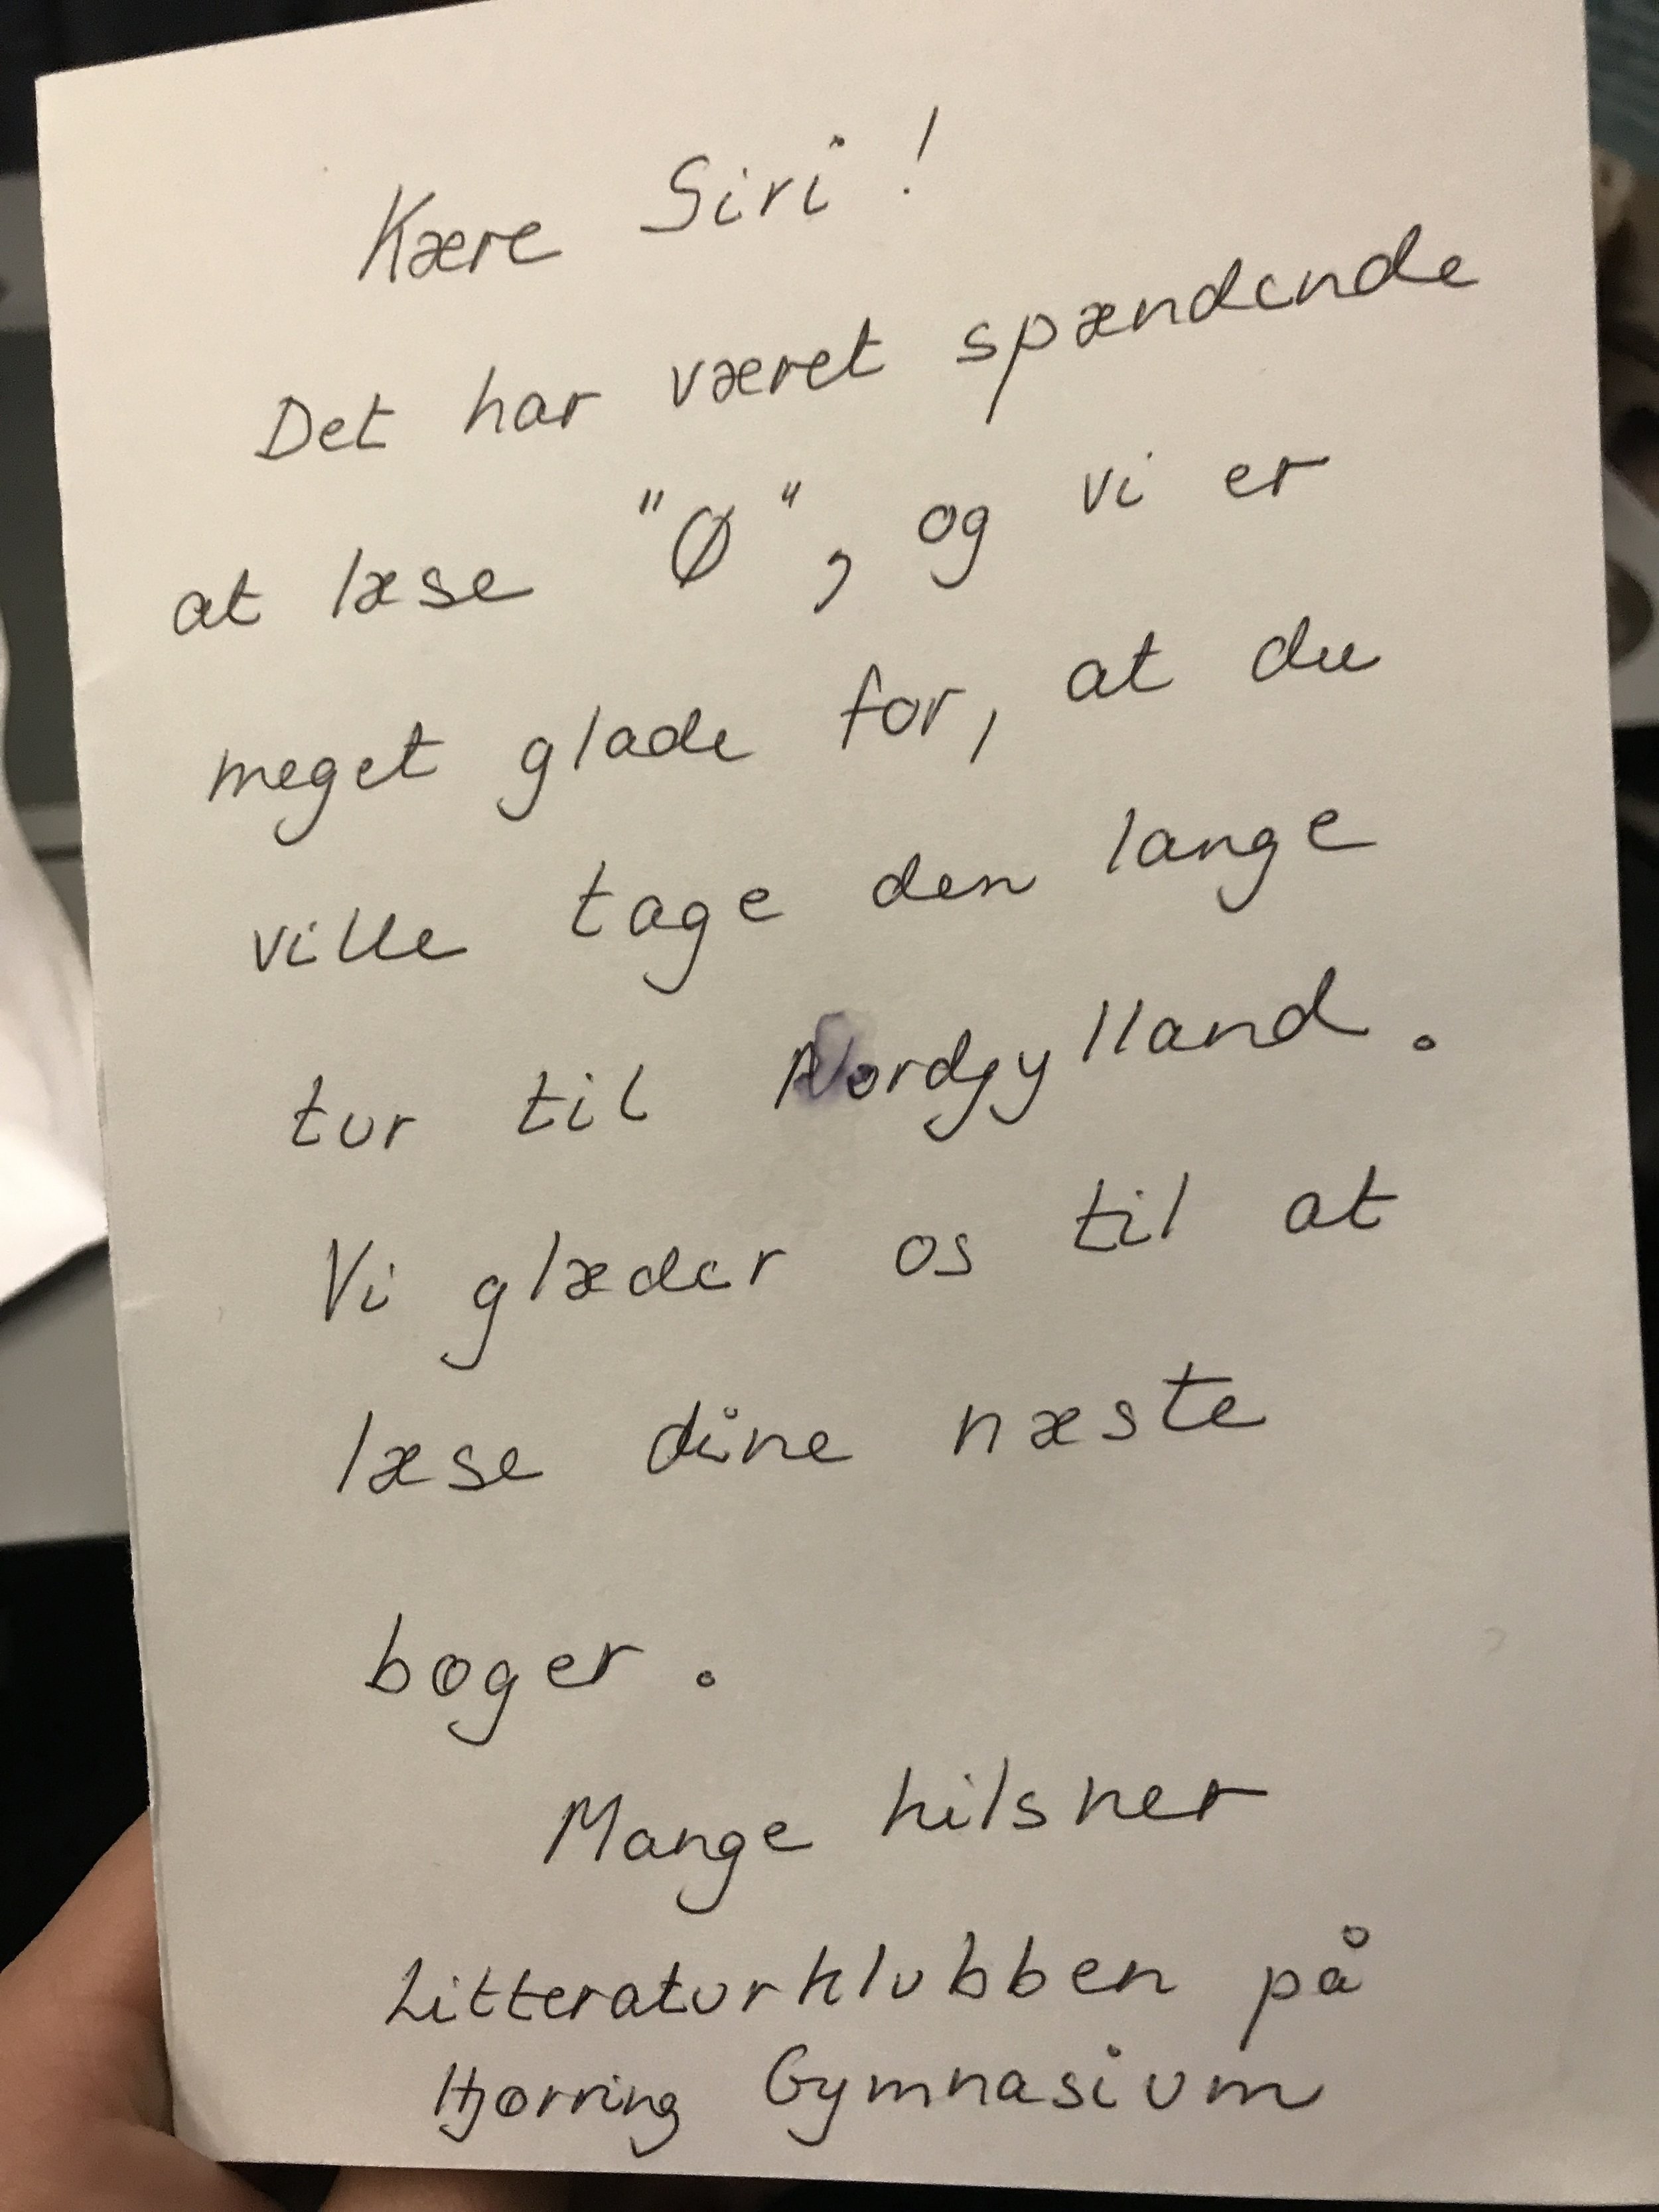 Kære Siri !
Det har været spændende
at læse "Ø", og vi er
meget glade for, at du
ville tage den lange
tur til Nordjylland.
Vi glæder os til at
læse dine næste
bøger.
Mange hilsner
Litteraturklubben på
Hjørring Gymnasium